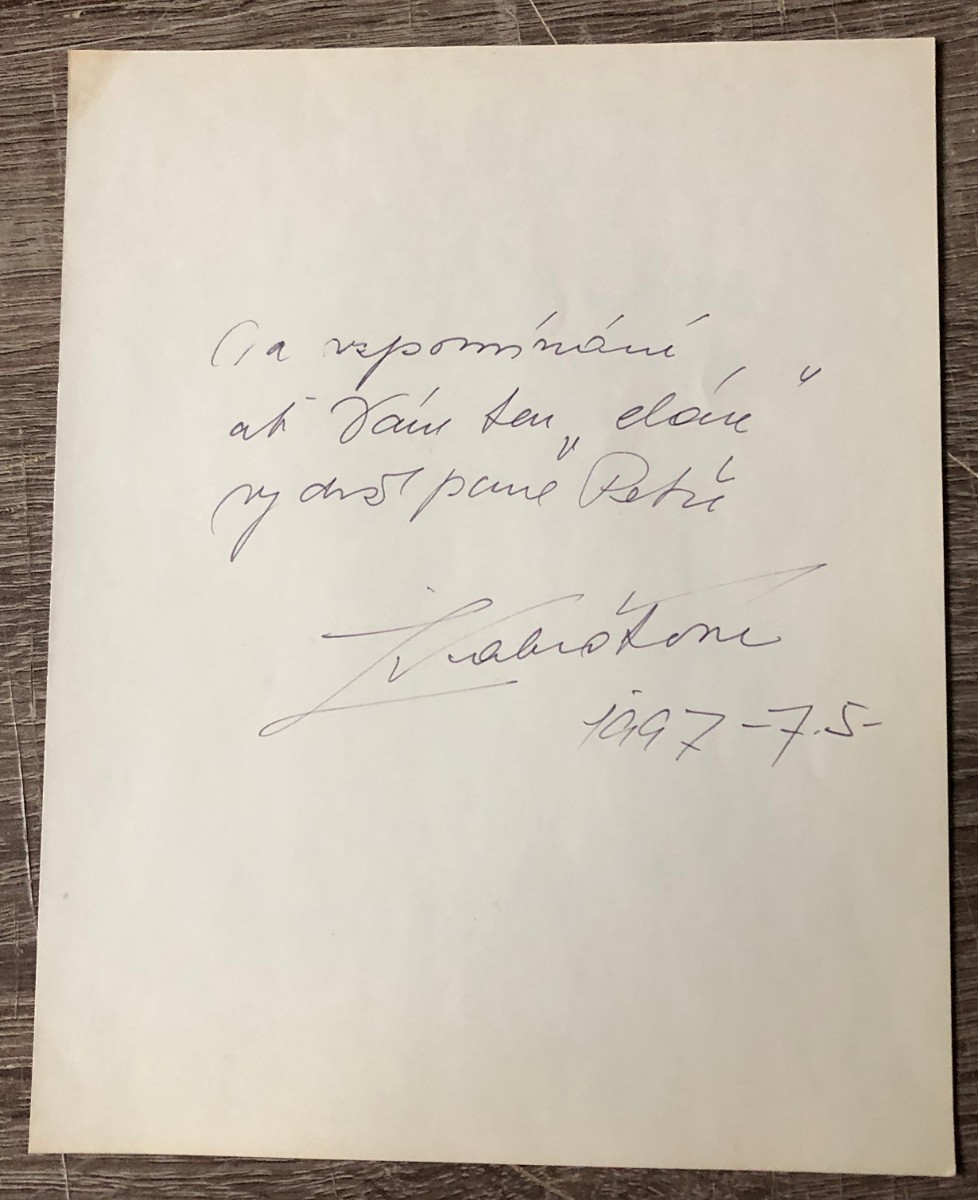 a vzpomínání
ať Vám ten „elán“
vydrží pane Petře
1997-7.5-